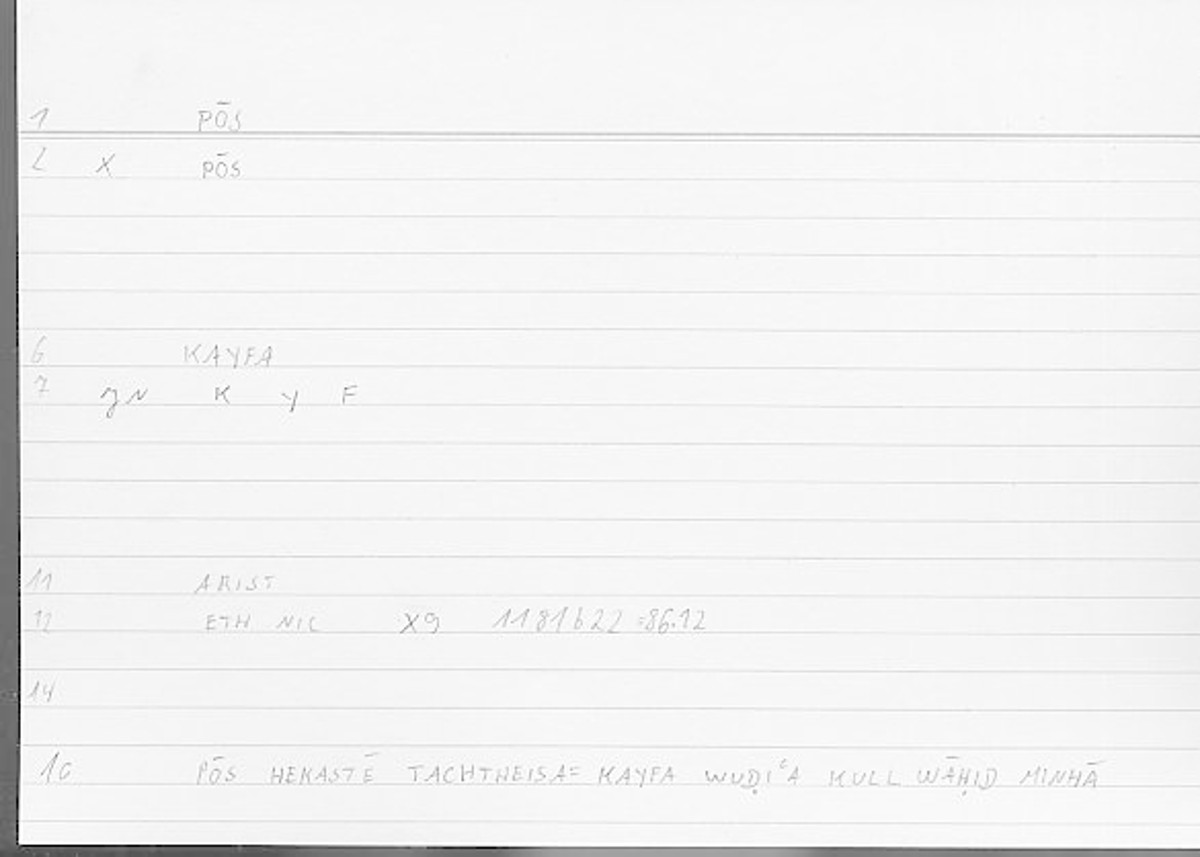 1 PŌS
2 X PŌS
6 KAYFA
7 gN K Y F
11 ARIST
12 ETH NIC X9 1181b22 =86.12
14
10 PŌS HEKASTĒ TACHTHEISA= KAYFA WUḌIʿA KULL WĀḤID MINHĀ